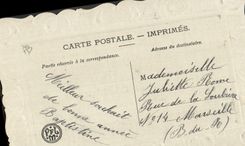 CARTE POSTALE. — IMPRIMÉS.
Partie réservée à la correspondance.
Adresse du destinataire.
Meilleur souhait
de bonne année
Baptistine
Mademoiselle
Juliette Rome
Rue de la
N° 14 Marseille
(B. du R)